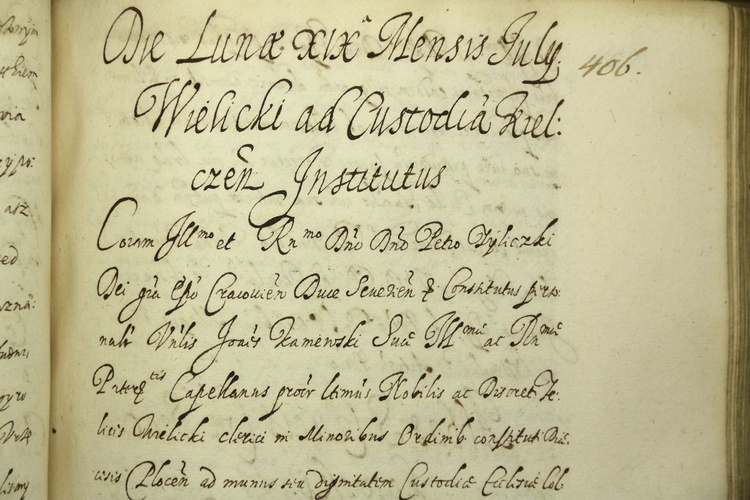 Die Lunæ XIXᵃ Mensis July. 406.
Wielicki ad Custodiā Kiel:
czēn Institutus
Coram Illᵐᵒ et Rnᵐᵒ Dn̄o Dn̄o Petro Tyliczki
Dei gr̄a Ep̄o Cracovien̄ Duce Severien̄ Constitutus perso:
nalr Vn̄lis Joan̄es Kamenski Suæ Illᵐᵃᵉ ac Rnᵐᵃᵉ
Capellanus procr̄ ltimus Nobilis ac Discret Fe:
licis Wielicki clerici in Minoribus Ordinib constituti Diæ:
cesis Plocen̄ ad munus seu dignitatem Custodiæ Ecclesiæ Col